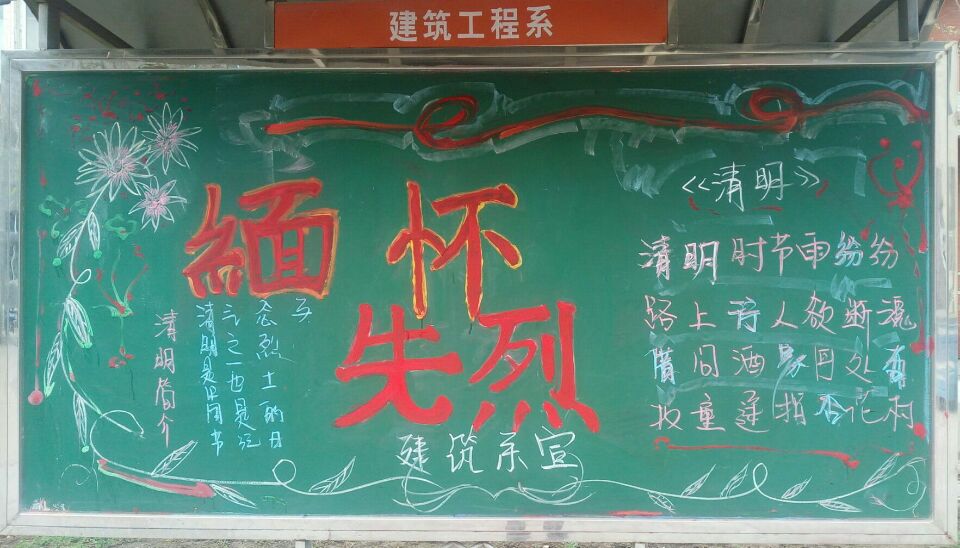 建筑工程系
緬怀
先烈
建筑系宣
清明简介
清明是中国节
气之一也是纪
念烈士的日
子
《清明》
清明时节雨纷纷
路上行人欲断魂
借问酒家何处有
牧童遥指杏花村